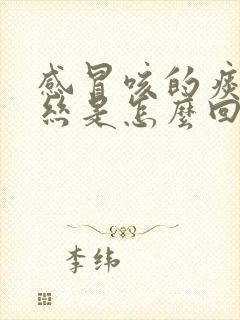 感冒咳的痰
絲是怎麼回
李纬